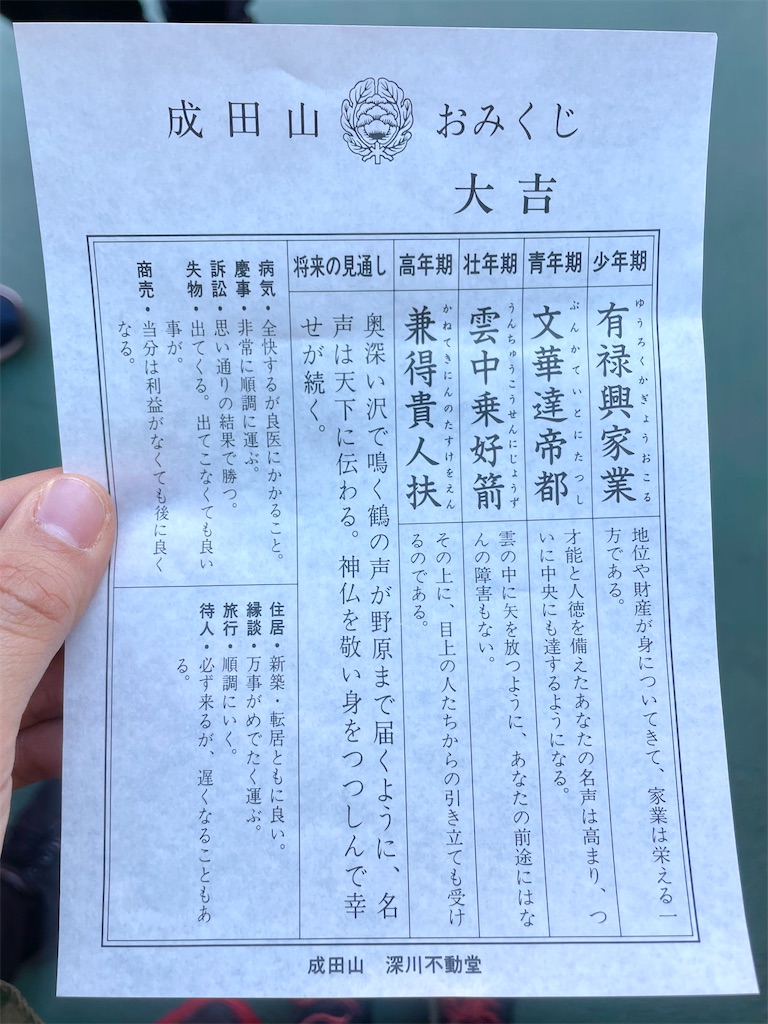 成田山 おみくじ
大吉
少年期
有禄興家業
ゆうろくかぎょうおこる
地位や財産が身についてきて、家業は栄える一
方である。
青年期
文華達帝都
ぶんかていとにたつし
才能と人徳を備えたあなたの名声は高まり、つ
いに中央にも達するようになる。
壮年期
雲中乗好箭
うんちゅうこうせんにじょうず
雲の中に矢を放つように、あなたの前途にはな
んの障害もない。
高年期
兼得貴人扶
かねてきにんのたすけをえん
その上に、目上の人たちからの引き立ても受け
るのである。
将来の見通し
奥深い沢で鳴く鶴の声が野原まで届くように、名
声は天下に伝わる。神仏を敬い身をつつしんで幸
せが続く。
病気・全快するが良医にかかること。
慶事・非常に順調に運ぶ。
訴訟・思い通りの結果で勝つ。
失物・出てくる。出てこなくても良い
事が。
商売・当分は利益がなくても後に良く
なる。
住居・新築・転居ともに良い。
縁談・万事がめでたく運ぶ。
旅行・順調にいく。
待人・必ず来るが、遅くなることもあ
る。
成田山 深川不動堂